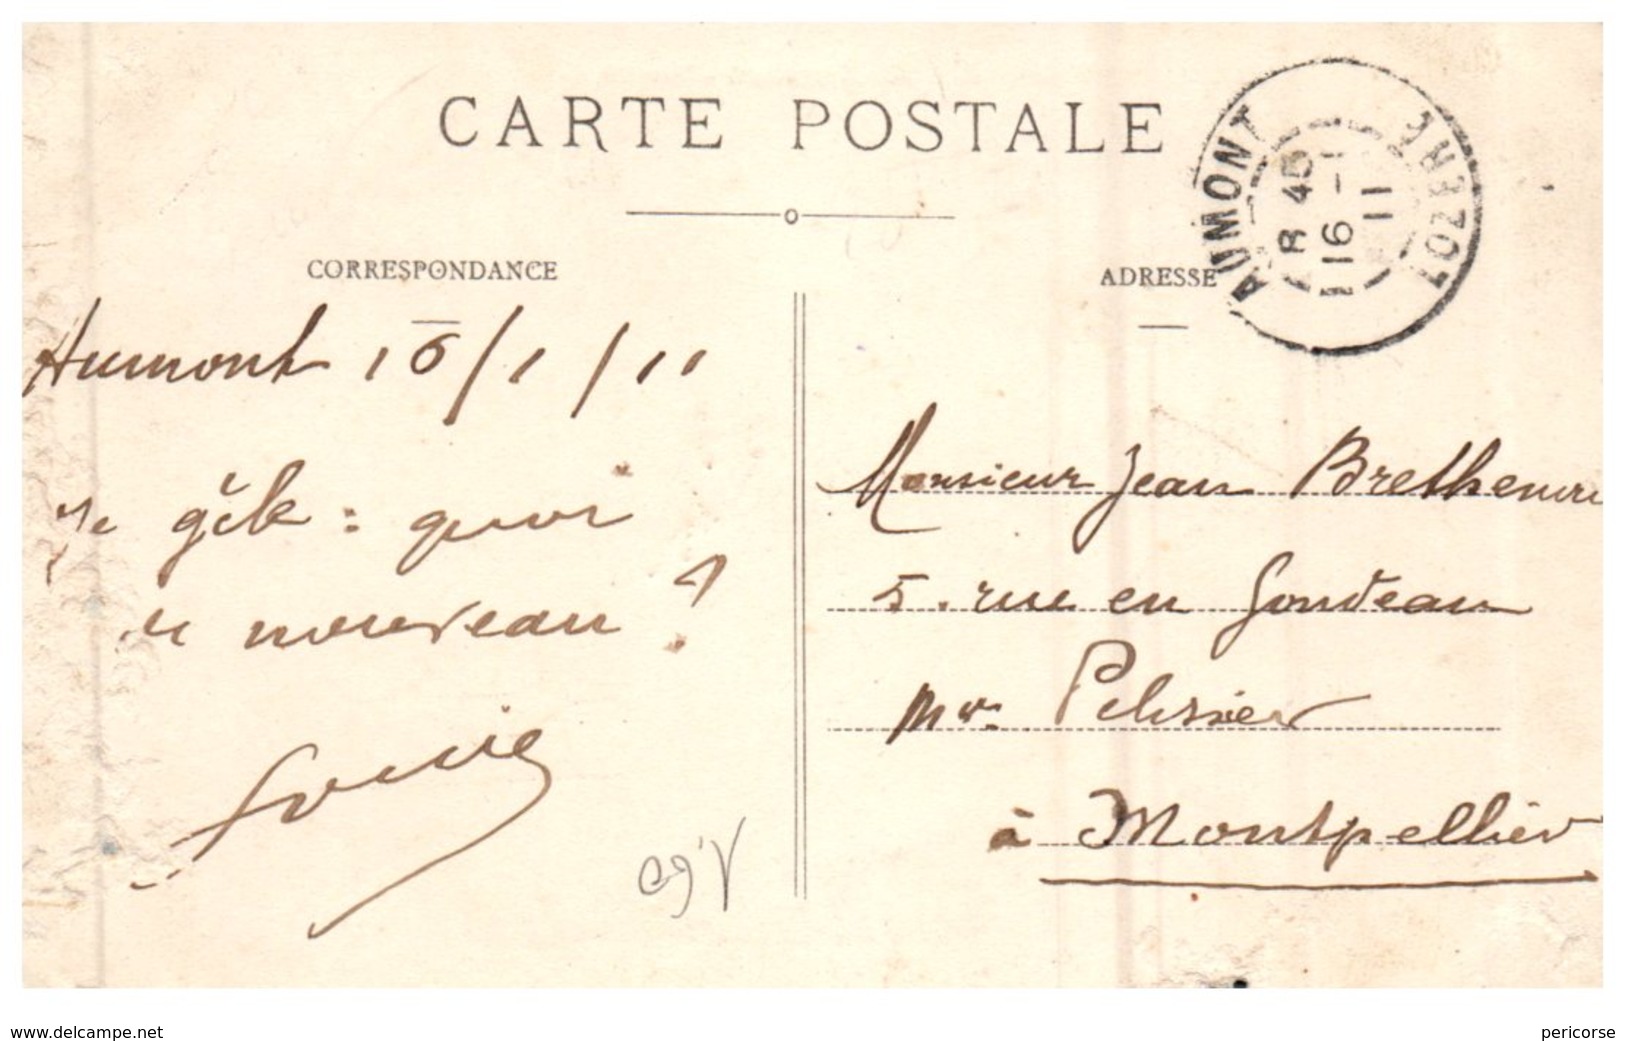 CARTE POSTALE
CORRESPONDANCE
ADRESSE
AUMONT
LOZERE
18 45
16 - 1
11
Aumont 16/1/11
Je gèle : quoi
de nouveau ?
Monsieur Jean Brethenou
5. rue en Gondeau
Mon Pelissier
à Montpellier
www.delcampe.net
pericorse